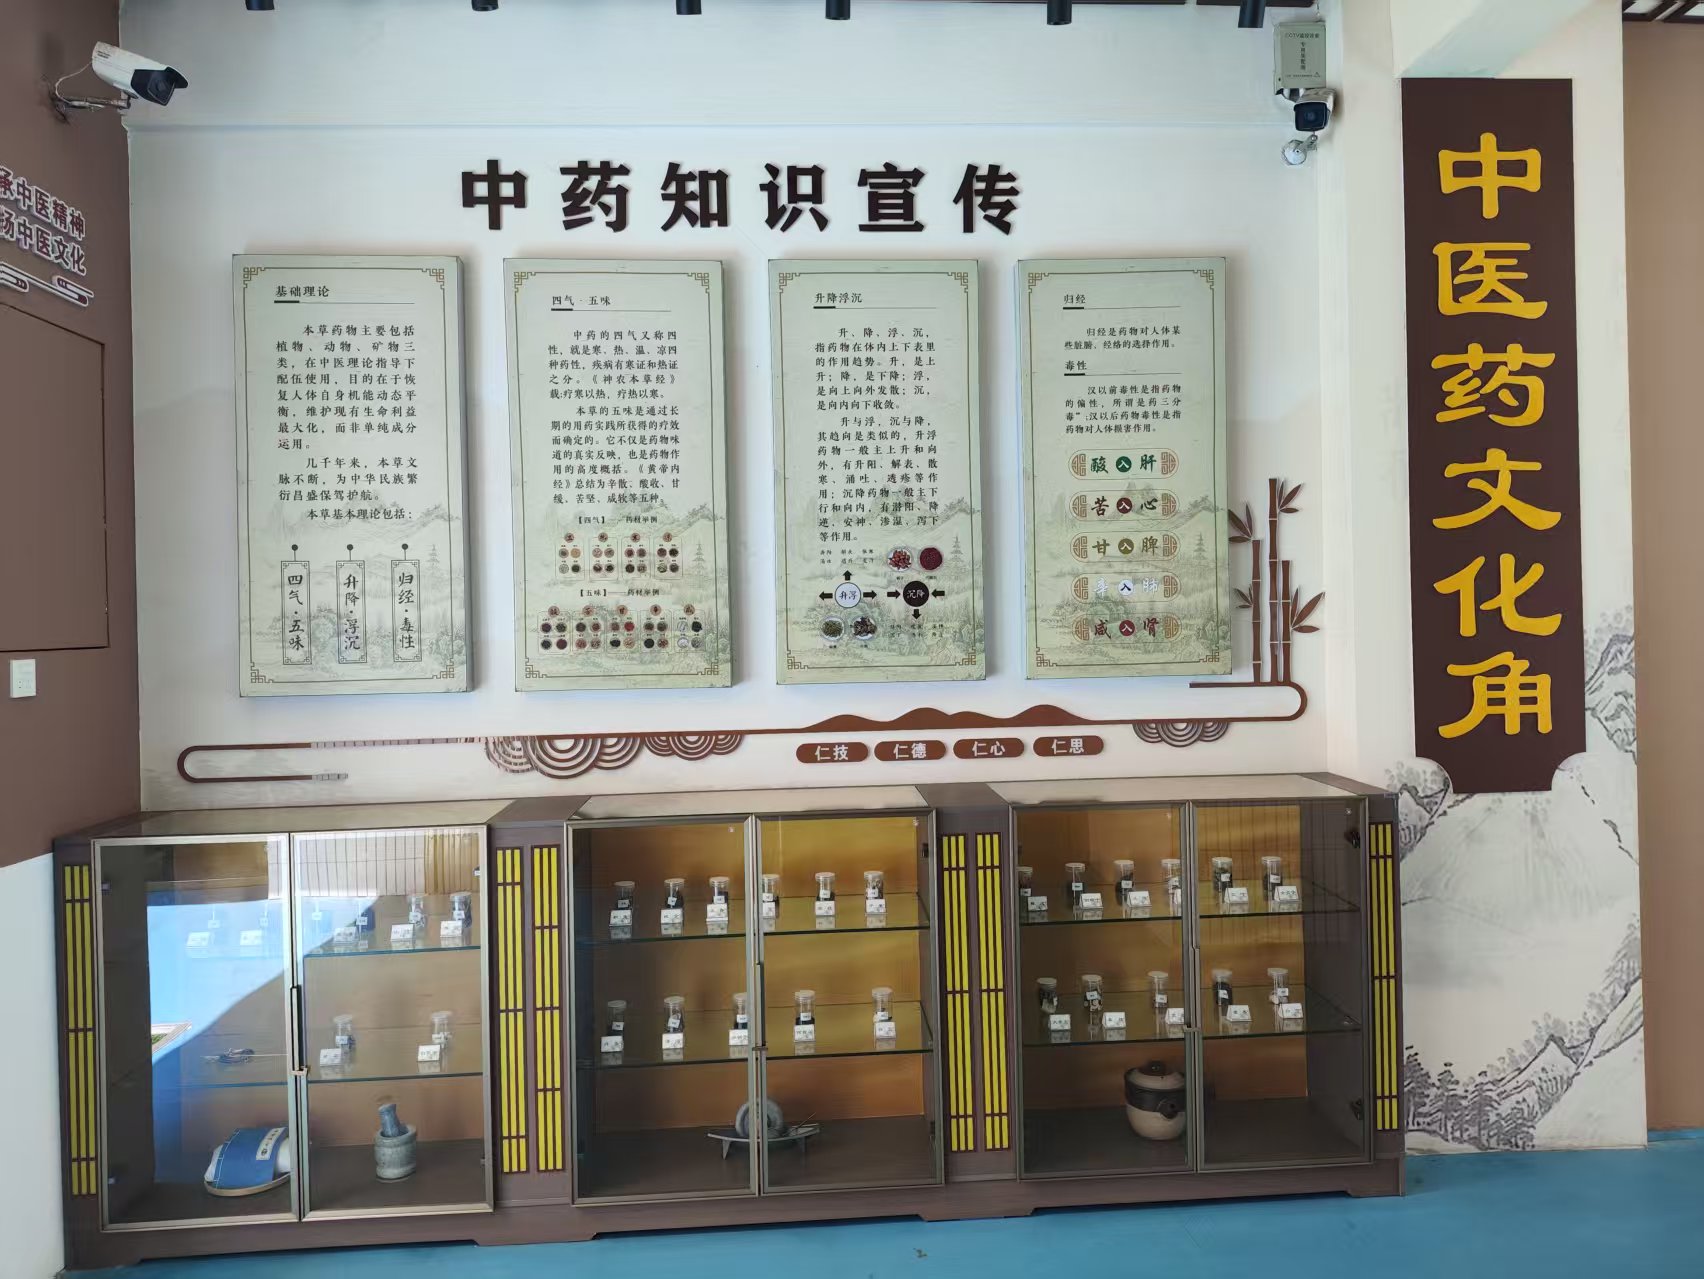 承中医精神
扬中医文化
中药知识宣传
基础理论
本草药物主要包括
植物、动物、矿物三
类，在中医理论指导下
配伍使用，目的在于恢
复人体自身机能动态平
衡，维护现有生命利益
最大化，而非单纯成分
运用。
几千年来，本草文
脉不断，为中华民族繁
衍昌盛保驾护航。
本草基本理论包括：
四气·五味
升降·浮沉
归经·毒性
四气·五味
中药的四气又称四
性，就是寒、热、温、凉四
种药性，疾病有寒证和热证
之分。《神农本草经》
载:疗寒以热，疗热以寒。
本草的五味是通过长
期的用药实践所获得的疗效
而确定的。它不仅是药物味
道的真实反映，也是药物作
用的高度概括。《黄帝内
经》总结为辛散、酸收、甘
缓、苦坚、咸软等五种。
【四气】——药材举例
【五味】——药材举例
酸 苦 甘 辛 咸
升降浮沉
升、降、浮、沉，
指药物在体内上下表里
的作用趋势。升，是上
升；降，是下降；浮，
是向上向外发散；沉，
是向内向下收敛。
升与浮，沉与降，
其趋向是类似的，升浮
药物一般主上升和向
外，有升阳、解表、散
寒、涌吐、透疹等作
用；沉降药物一般主下
行和向内，有潜阳、降
逆，安神、渗湿、泻下
等作用。
升浮
沉降
归经
归经是药物对人体某
些脏腑、经络的选择作用。
毒性
汉以前毒性是指药物
的偏性，所谓是药三分
毒”；汉以后药物毒性是指
药物对人体损害作用。
酸入肝
苦入心
甘入脾
辛入肺
咸入肾
仁技
仁德
仁心
仁思
中医药文化角